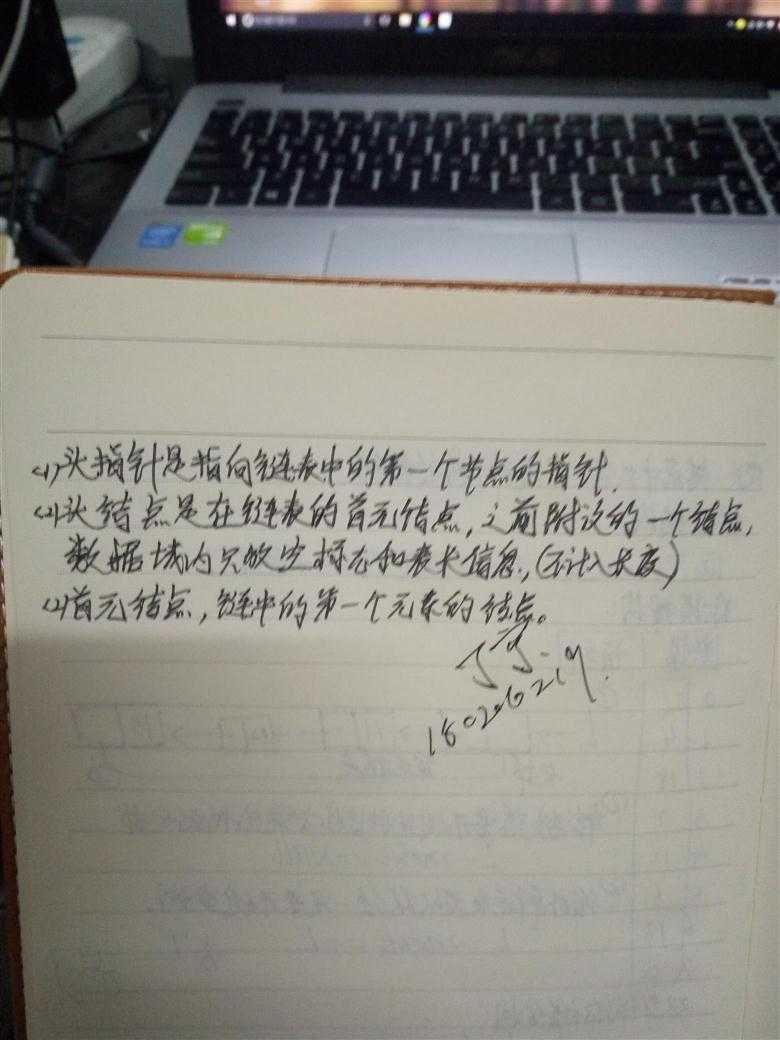 (1)头指针是指向链表中的第一个节点的指针.
(2)头结点是在链表的首元结点,之前附设的一个结点,
数据域内只放空标志和表长信息,(不计入长度)
(2)首元结点,链中的第一个元素的结点。